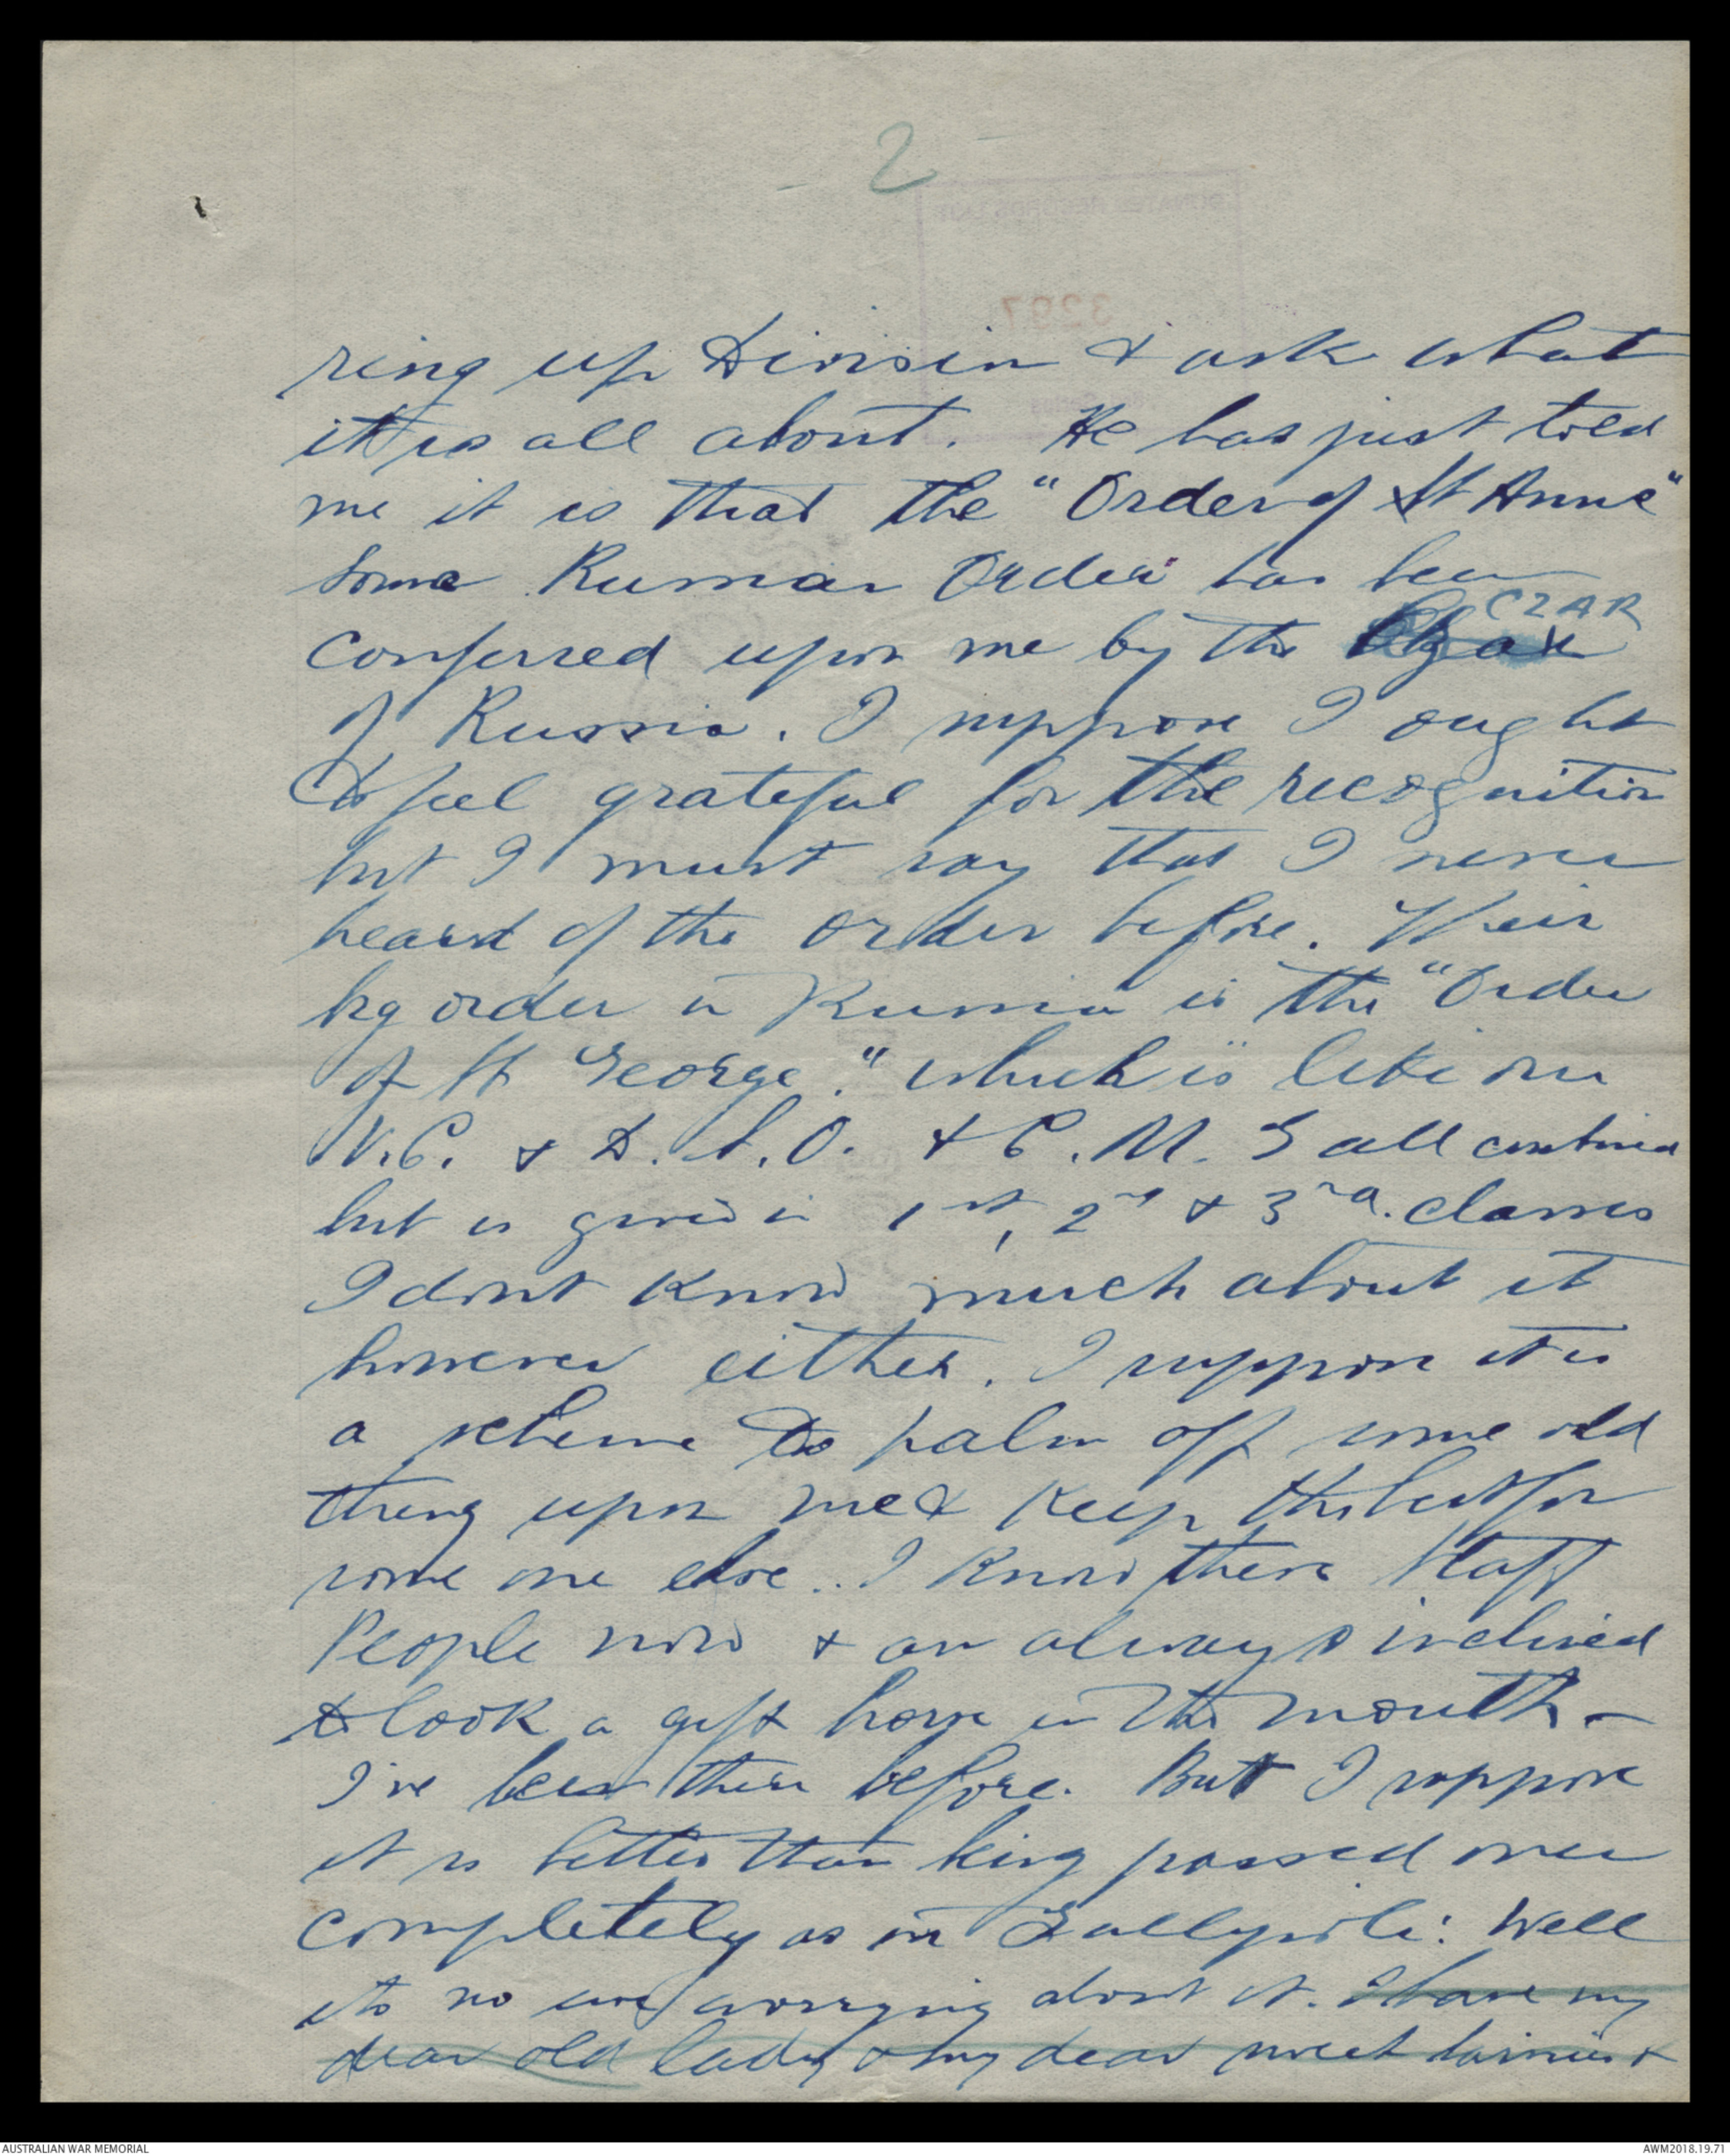 - 2 -
ring up Division & ask what
it is all about. He has just told
me it is that the "Order of St Anne"
some Russian Order has been
conferred upon me by the CZAR
of Russia. I suppose I ought
to feel grateful for the recognition
but I must say that I never
heard of the Order before. Their
big order in Russia is the "Order
of St George." which is like our
V.C. & D.S.O. & C.M.G all combined
but is given in 1st, 2nd & 3rd. classes
I dont know much about it
however either. I suppose it is
a scheme to palm off some old
thing upon me & keep the best for
some one else.. I know these Staff
People now & am always inclined
to look a gift horse in the mouth -
I've been there before. But I suppose
it is better than being passed over
completely as in Gallypoli: Well
its no use worrying about it. I have my
dear old lady & my dear sweet &
3297
AUSTRALIAN WAR MEMORIAL
AWM2018.19.71